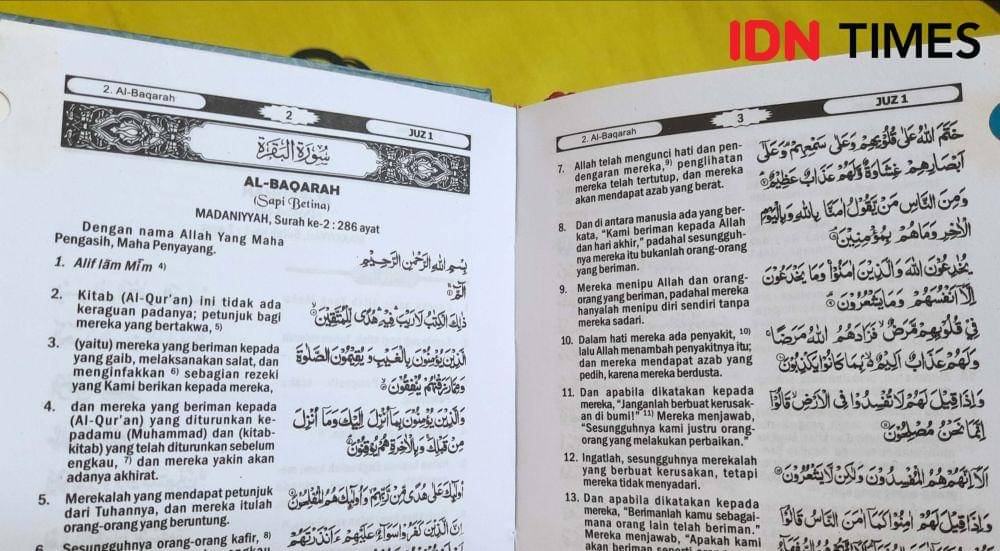 IDN TIMES
2. Al-Baqarah
2
JUZ 1
سُورَةُ الْبَقَرَةِ
AL-BAQARAH
(Sapi Betina)
MADANIYYAH, Surah ke-2 : 286 ayat
Dengan nama Allah Yang Maha
Pengasih, Maha Penyayang.
بِسْمِ اللّٰهِ الرَّحْمٰنِ الرَّحِيْمِ
1. Alif lām Mīm 4)
الۤمّۤ ۚ
2. Kitab (Al-Qur'an) ini tidak ada
keraguan padanya; petunjuk bagi
mereka yang bertakwa, 5)
ذٰلِكَ الْكِتٰبُ لَا رَيْبَ فِيْهِ هُدًى لِّلْمُتَّقِيْنَ
3. (yaitu) mereka yang beriman kepada
yang gaib, melaksanakan salat, dan
menginfakkan 6) sebagian rezeki
yang Kami berikan kepada mereka,
الَّذِيْنَ يُؤْمِنُوْنَ بِالْغَيْبِ وَيُقِيْمُوْنَ الصَّلٰوةَ
وَمِمَّا رَزَقْنٰهُمْ يُنْفِقُوْنَ
4. dan mereka yang beriman kepada
(Al-Qur'an) yang diturunkan ke-
padamu (Muhammad) dan (kitab-
kitab) yang telah diturunkan sebelum
engkau, 7) dan mereka yakin akan
adanya akhirat.
وَالَّذِيْنَ يُؤْمِنُوْنَ بِمَآ اُنْزِلَ اِلَيْكَ وَمَآ اُنْزِلَ
مِنْ قَبْلِكَ وَبِالْاٰخِرَةِ هُمْ يُوْقِنُوْنَ
5. Merekalah yang mendapat petunjuk
dari Tuhannya, dan mereka itulah
orang-orang yang beruntung.
اُولٰۤىِٕكَ عَلٰى هُدًى مِّنْ رَّبِّهِمْ وَاُولٰۤىِٕكَ هُمُ الْمُفْلِحُوْنَ
6. Sesungguhnya orang-orang kafir, 8)
اِنَّ الَّذِيْنَ كَفَرُوْا سَوَاۤءٌ عَلَيْهِمْ ءَاَنْذَرْتَهُمْ
2. Al-Baqarah
3
JUZ 1
7. Allah telah mengunci hati dan pen-
dengaran mereka,9) penglihatan
mereka telah tertutup, dan mereka
akan mendapat azab yang berat.
خَتَمَ اللّٰهُ عَلٰى قُلُوْبِهِمْ وَعَلٰى سَمْعِهِمْ وَعَلٰٓى
اَبْصَارِهِمْ غِشَاوَةٌ وَّلَهُمْ عَذَابٌ عَظِيْمٌ
8. Dan di antara manusia ada yang ber-
kata, "Kami beriman kepada Allah
dan hari akhir," padahal sesungguh-
nya mereka itu bukanlah orang-orang
yang beriman.
وَمِنَ النَّاسِ مَنْ يَّقُوْلُ اٰمَنَّا بِاللّٰهِ وَبِالْيَوْمِ
الْاٰخِرِ وَمَا هُمْ بِمُؤْمِنِيْنَ
9. Mereka menipu Allah dan orang-
orang yang beriman, padahal mereka
hanyalah menipu diri sendiri tanpa
mereka sadari.
يُخٰدِعُوْنَ اللّٰهَ وَالَّذِيْنَ اٰمَنُوْا وَمَا يَخْدَعُوْنَ
اِلَّآ اَنْفُسَهُمْ وَمَا يَشْعُرُوْنَ
10. Dalam hati mereka ada penyakit, 10)
lalu Allah menambah penyakitnya itu;
dan mereka mendapat azab yang
pedih, karena mereka berdusta.
فِيْ قُلُوْبِهِمْ مَّرَضٌ فَزَادَهُمُ اللّٰهُ مَرَضًا
وَلَهُمْ عَذَابٌ اَلِيْمٌ بِمَا كَانُوْا يَكْذِبُوْنَ
11. Dan apabila dikatakan kepada
mereka, "Janganlah berbuat kerusak-
an di bumi!" 11) Mereka menjawab,
"Sesungguhnya kami justru orang-
orang yang melakukan perbaikan."
وَاِذَا قِيْلَ لَهُمْ لَا تُفْسِدُوْا فِى الْاَرْضِ قَالُوْٓا
اِنَّمَا نَحْنُ مُصْلِحُوْنَ
12. Ingatlah, sesungguhnya merekalah
yang berbuat kerusakan, tetapi
mereka tidak menyadari.
اَلَآ اِنَّهُمْ هُمُ الْمُفْسِدُوْنَ وَلٰكِنْ لَّا يَشْعُرُوْنَ
13. Dan apabila dikatakan kepada
mereka, "Berimanlah kamu sebagai-
mana orang lain telah beriman."
Mereka menjawab, "Apakah kami
akan beriman seperti
وَاِذَا قِيْلَ لَهُمْ اٰمِنُوْا كَمَآ اٰمَنَ النَّاسُ قَالُوْٓا